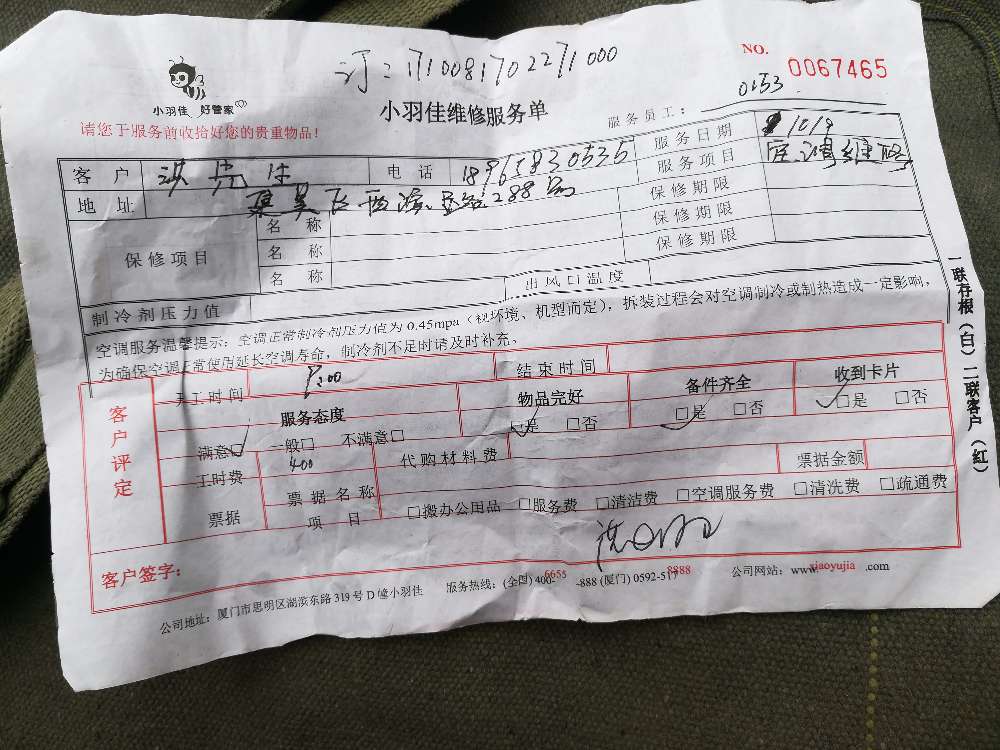 订:1710081702271000
NO. 0067465
小羽佳 好管家
小羽佳维修服务单
服务员工: 0153
请您于服务前收拾好您的贵重物品!
客户 电话 18965830535 服务日期 10/9
地址 288号 服务项目 空调维修
保修项目 名称 保修期限
名称 保修期限
名称 保修期限
制冷剂压力值 出风口温度
空调服务温馨提示:空调正常制冷剂压力值为0.45mpa(视环境、机型而定),拆装过程会对空调制冷或制热造成一定影响,
为确保空调正常使用延长空调寿命,制冷剂不足时请及时补充。
客户评定
开工时间 结束时间
服务态度 物品完好 备件齐全 收到卡片
满意□ 一般□ 不满意□ □是 □否 □是 □否 □是 □否
工时费 400 代购材料费 票据金额
票据 票据名称项目 □搬办公用品 □服务费 □清洁费 □空调服务费 □清洗费 □疏通费
客户签字:
公司地址:厦门市思明区湖滨东路319号D幢小羽佳 服务热线:(全国)400-6655-888 (厦门)0592-5178888 公司网站:www.xiaoyujia.com
一联存根(白)二联客户(红)